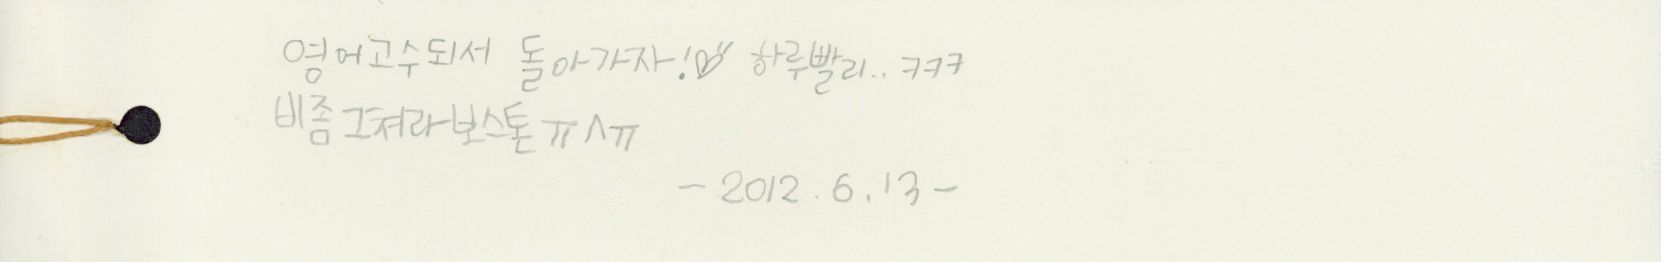 영어고수되서 돌아가자!♡ 하루빨리.. ㅋㅋㅋ
비좀그쳐라보스톤ㅠ^ㅠ
-2012.6.13-